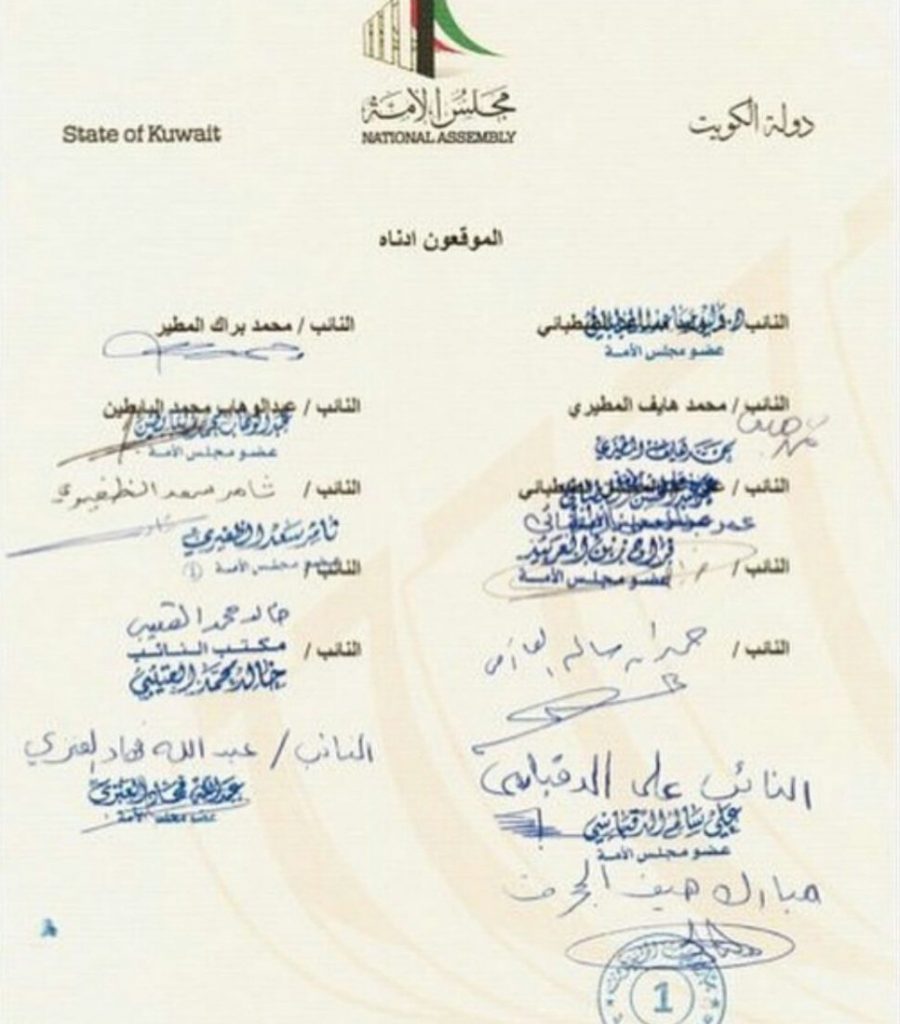 مجلس الأمة
NATIONAL ASSEMBLY
دولة الكويت
State of Kuwait
الموقعون ادناه
النائب / الطبطبائي
عضو مجلس الأمة
النائب / محمد براك المطير
النائب / محمد هايف المطيري
محمد هايف المطيري
النائب / عبدالوهاب محمد البابطين
عبدالوهاب محمد البابطين
عضو مجلس الأمة
النائب / الطبطبائي
عمر عبدالمحسن الطبطبائي
النائب / ثامر سعد الظفيري
ثامر سعد الظفيري
عضو مجلس الأمة
النائب /
فراج زبن العربيد
عضو مجلس الأمة
النائب /
خالد محمد العتيبي
النائب / حمدان سالم العازمي
النائب /
مكتب النائب
خالد محمد العتيبي
النائب علي الدقباسي
علي سالم الدقباسي
عضو مجلس الأمة
النائب / عبدالله فهاد العنزي
عبدالله فهاد العنزي
عضو مجلس الأمة
مبارك هيف الحجرف
1